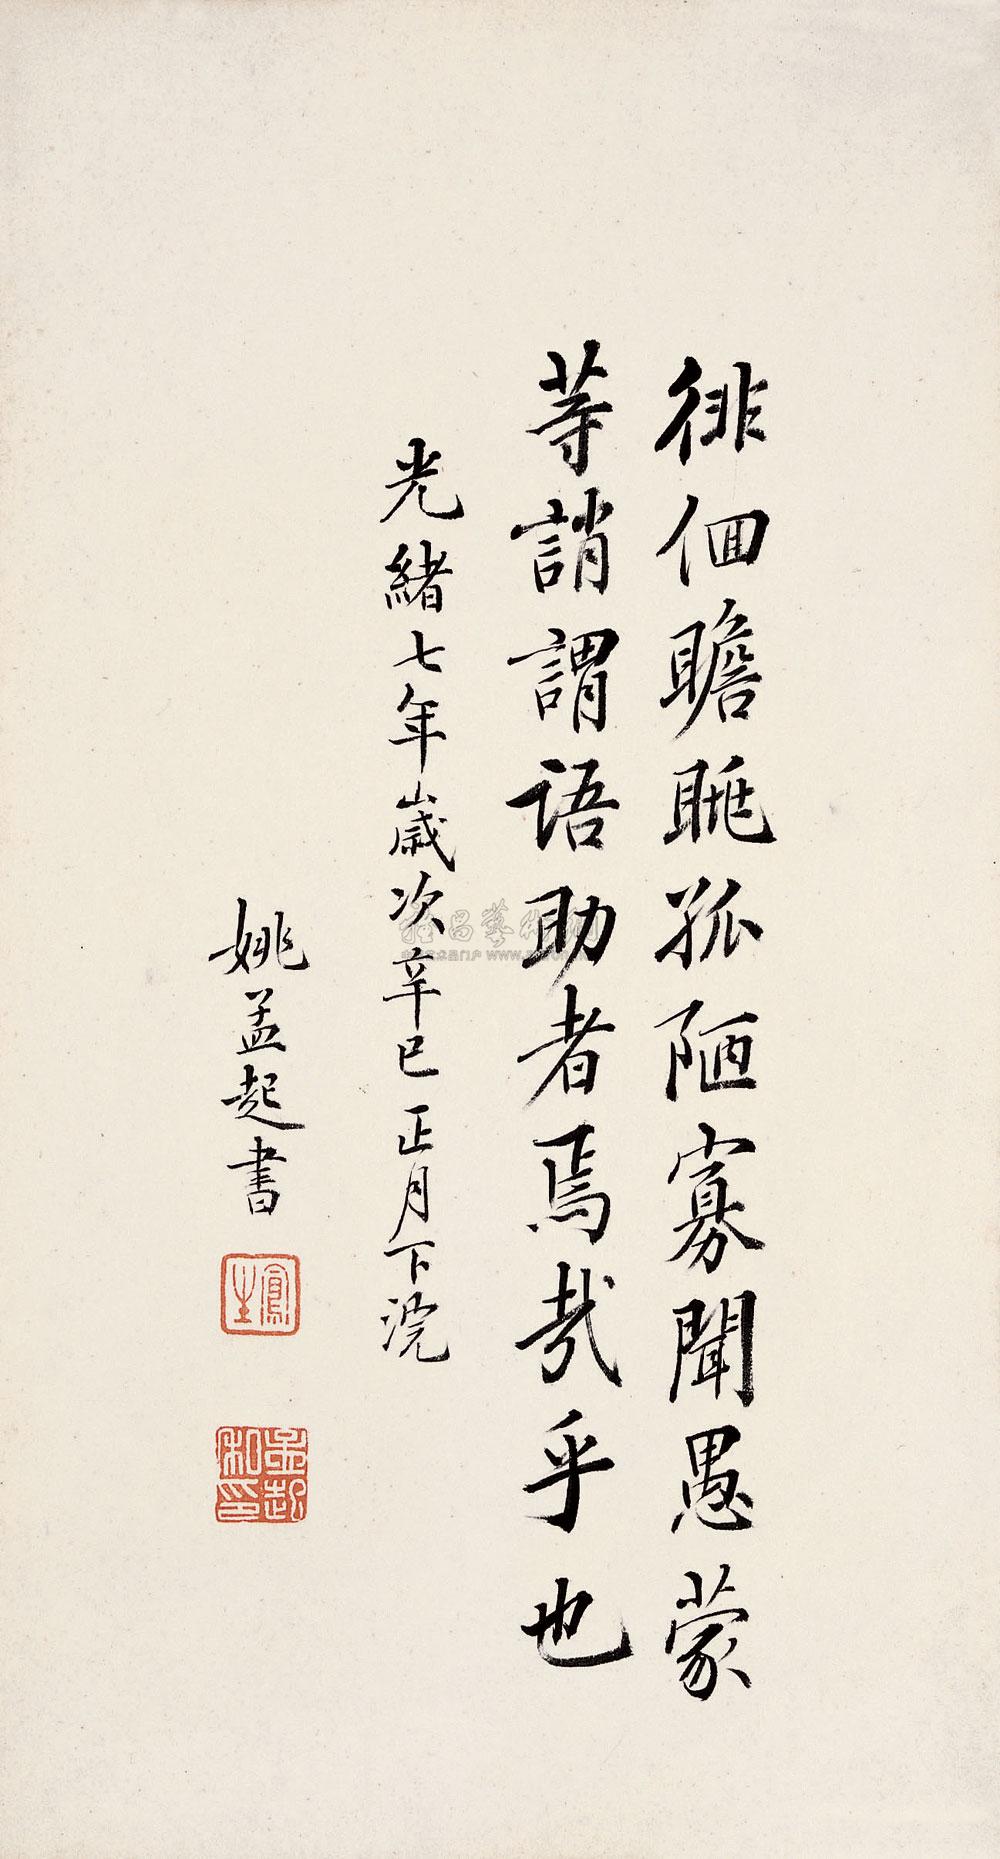 徘徊瞻眺孤陋寡聞愚蒙
等誚謂语助者焉哉乎也
光緒七年歲次辛巳正月下浣
姚孟起書
鳳生
孟起私印
www.